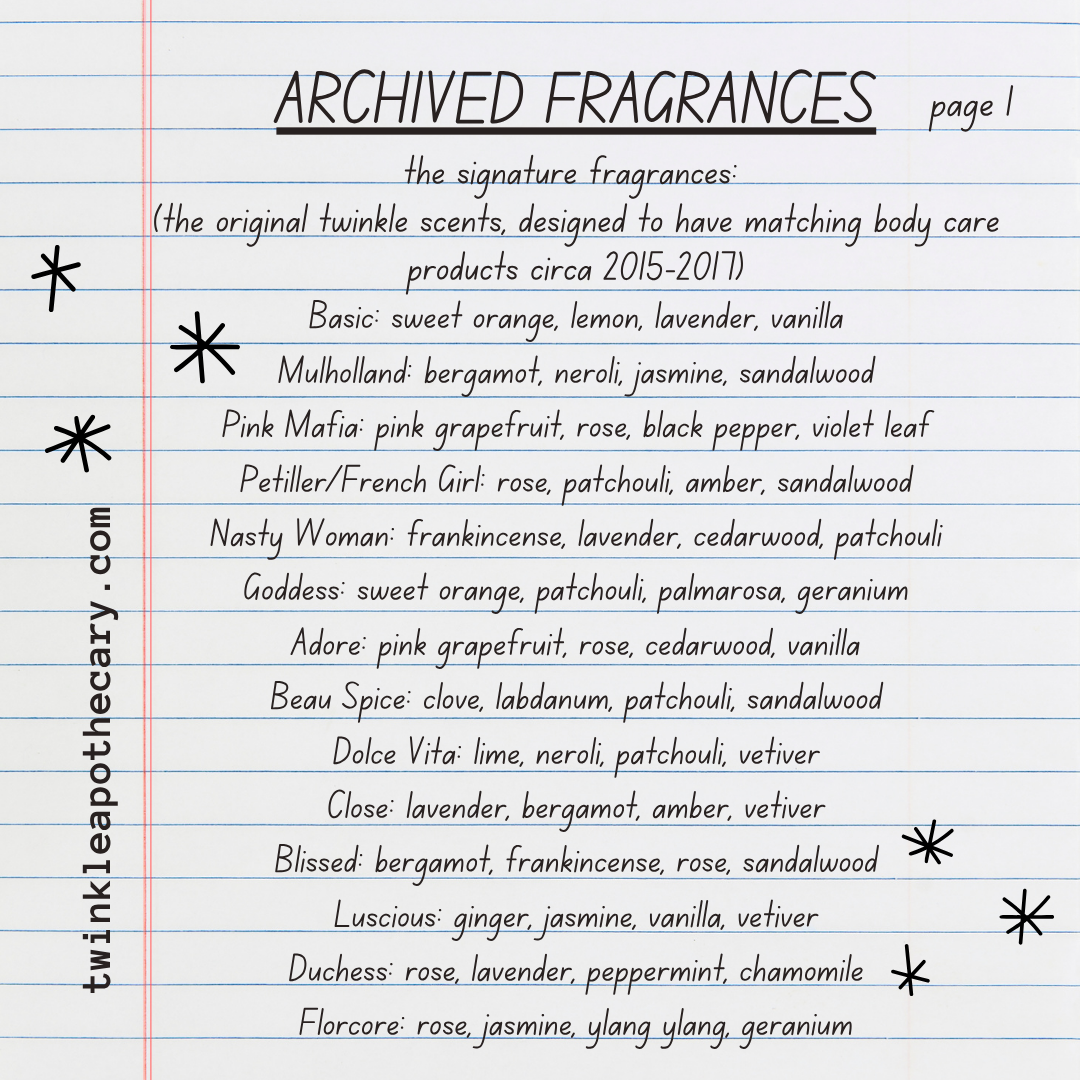 ARCHIVED FRAGRANCES
page 1
the signature fragrances:
(the original twinkle scents, designed to have matching body care
products circa 2015-2017)
Basic: sweet orange, lemon, lavender, vanilla
Mulholland: bergamot, neroli, jasmine, sandalwood
Pink Mafia: pink grapefruit, rose, black pepper, violet leaf
Petiller/French Girl: rose, patchouli, amber, sandalwood
Nasty Woman: frankincense, lavender, cedarwood, patchouli
Goddess: sweet orange, patchouli, palmarosa, geranium
Adore: pink grapefruit, rose, cedarwood, vanilla
Beau Spice: clove, labdanum, patchouli, sandalwood
Dolce Vita: lime, neroli, patchouli, vetiver
Close: lavender, bergamot, amber, vetiver
Blissed: bergamot, frankincense, rose, sandalwood
Luscious: ginger, jasmine, vanilla, vetiver
Duchess: rose, lavender, peppermint, chamomile
Florcore: rose, jasmine, ylang ylang, geranium
twinkleapothecary.com